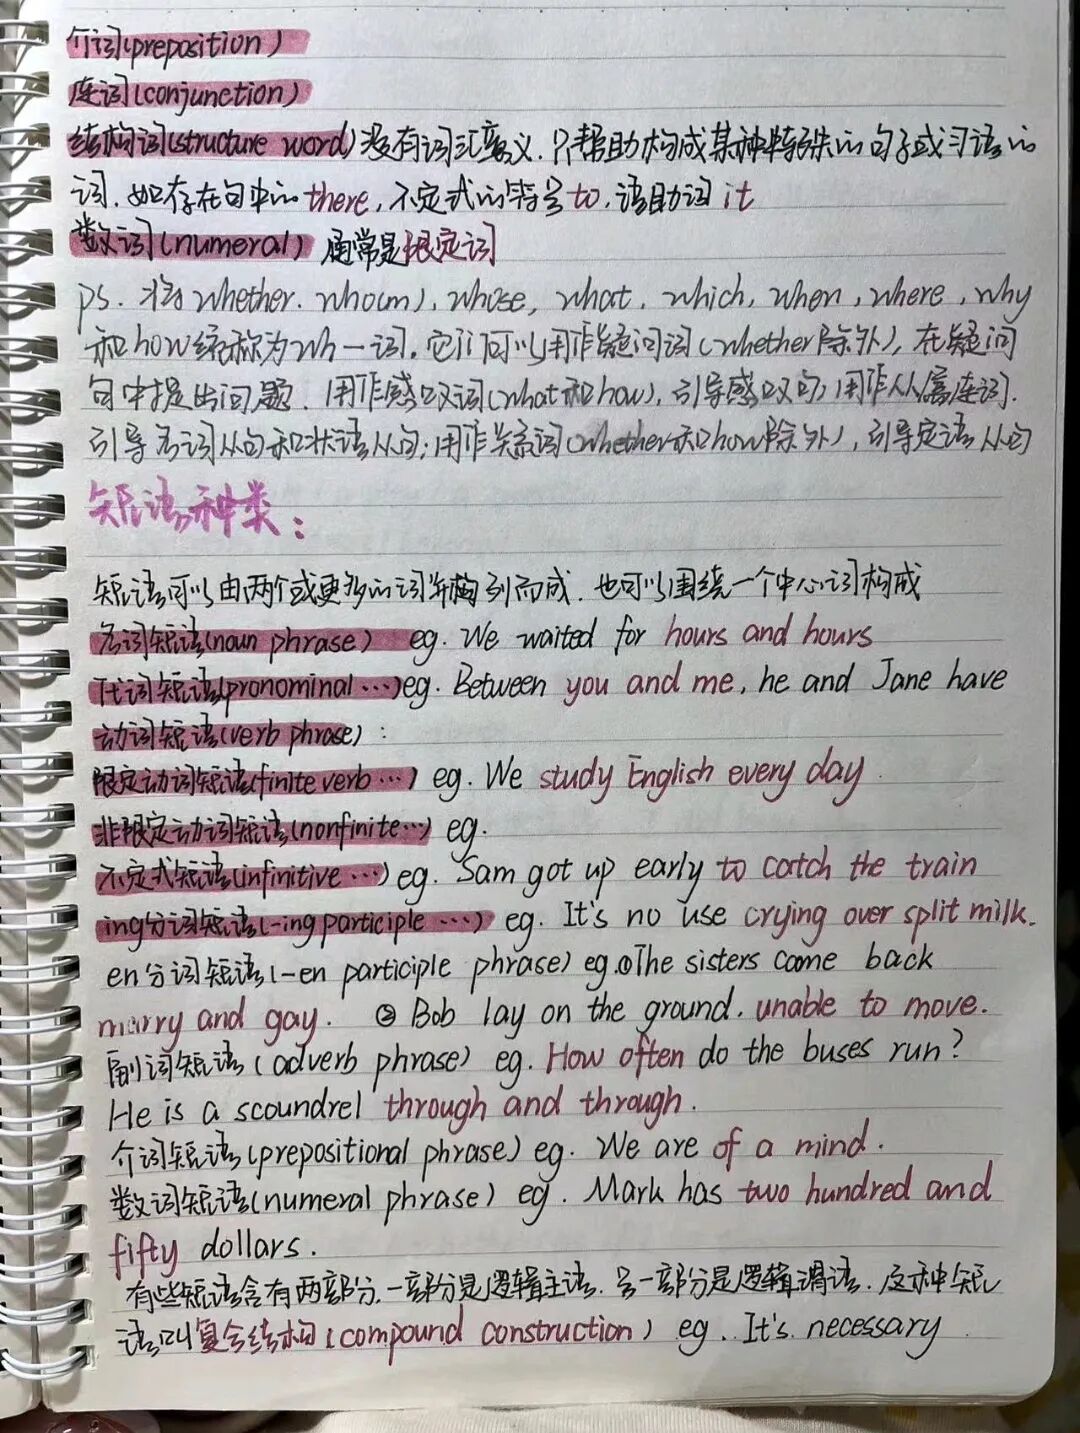 介词(preposition)
连词(conjunction)
结构词(structure word)没有词汇意义.只帮助构成某种特殊的句子或习语的
词.如存在句中的there,不定式的符号to,语助词it
数词(numeral) 通常是限定词
ps. 将whether. who(m), whose, what, which, when, where, why
和how统称为wh一词.它们可以用作疑问词(whether除外),在疑问
句中提出问题.用作感叹词(what和how),引导感叹句;用作从属连词.
引导名词从句和状语从句;用作关系词(whether和how除外),引导定语从句
短语种类:
短语可以由两个或更多的词并构列而成.也可以围绕一个中心词构成
名词短语(noun phrase) eg. We waited for hours and hours
代词短语(pronominal ...)eg. Between you and me, he and Jane have
动词短语(verb phrase):
限定动词短语(finite verb ...) eg. We study English every day
非限定动词短语(nonfinite...) eg.
不定式短语(infinitive ...) eg. Sam got up early to catch the train
ing分词短语(-ing participle ...) eg. It's no use crying over split milk.
en分词短语(-en participle phrase) eg.①The sisters come back
marry and gay. ② Bob lay on the ground. unable to move.
副词短语(adverb phrase) eg. How often do the buses run?
He is a scoundrel through and through.
介词短语(prepositional phrase) eg. We are of a mind.
数词短语(numeral phrase) eg. Mark has two hundred and
fifty dollars.
有些短语含有两部分.一部分是逻辑主语.另一部分是逻辑谓语.这种短
语叫复合结构(compound construction) eg. It's necessary